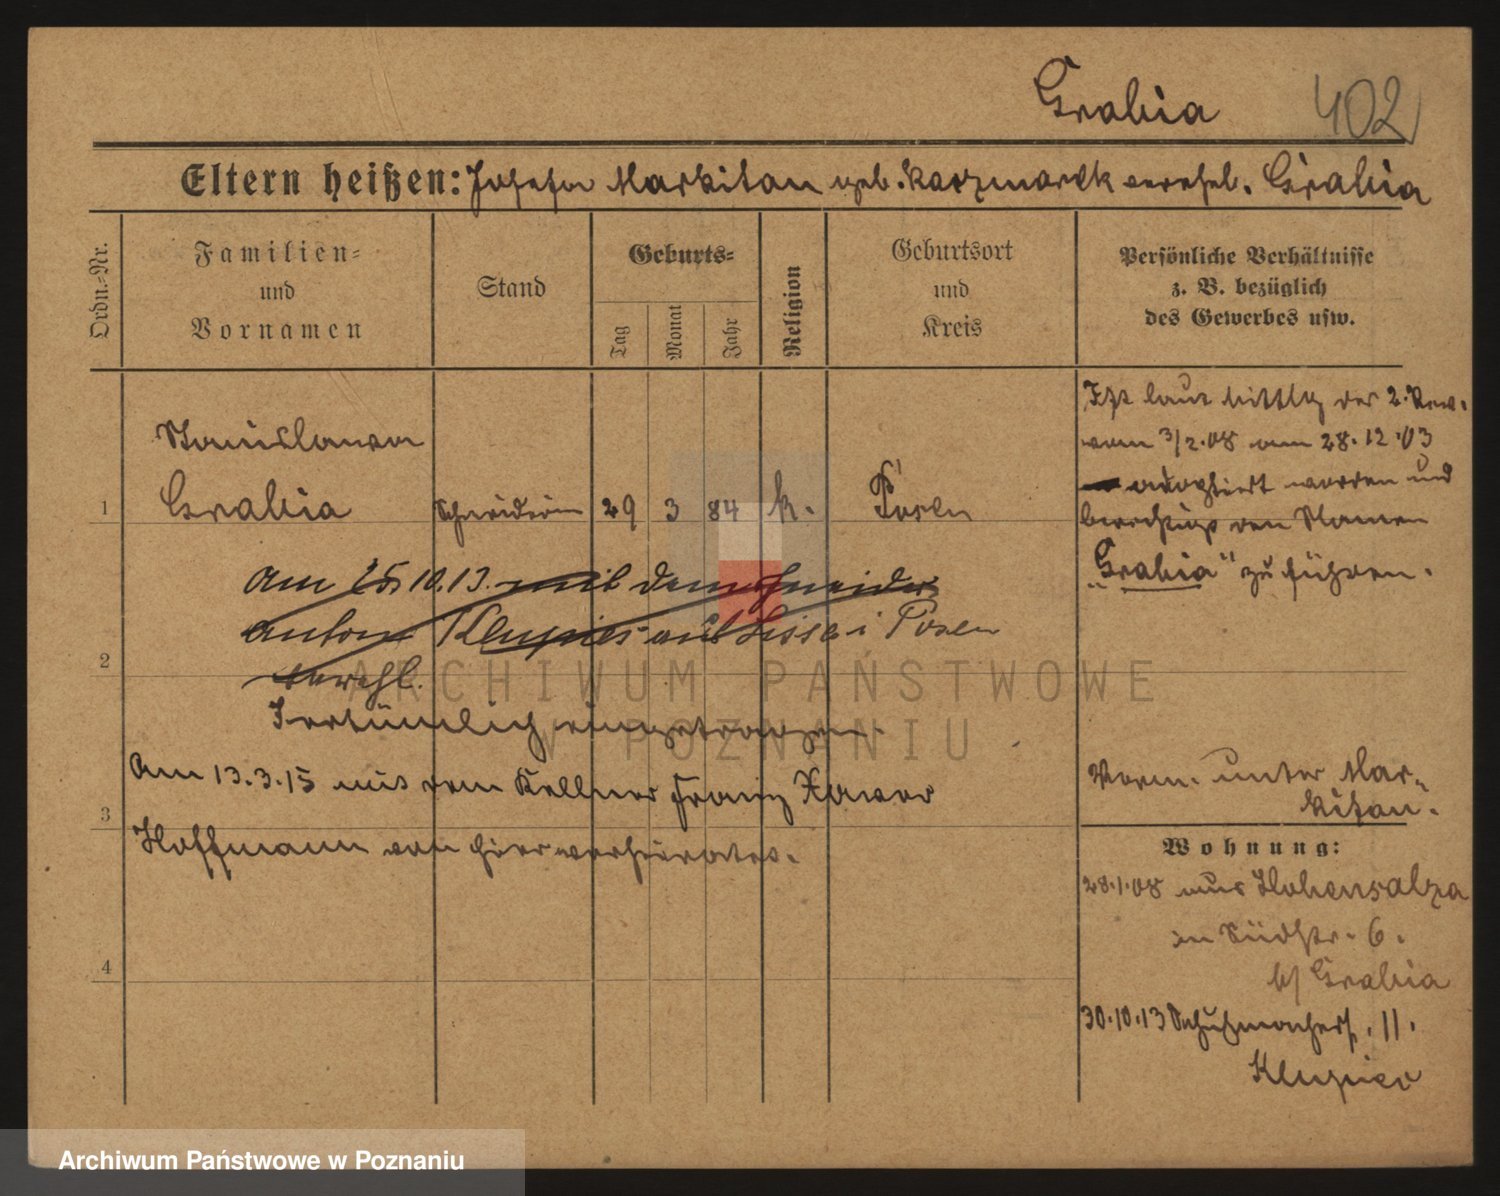 Grabia 402
Eltern heißen: Josefa Markitan geb. Kaczmarek verehel. Grabia
Ordn.-Nr.
Familien-
und
Vornamen
Stand
Geburts-
Tag
Monat
Jahr
Religion
Geburtsort
und
Kreis
Persönliche Verhältnisse
z. B. bezüglich
des Gewerbes usw.
Stanislawa
1 Grabia Schneiderin 29 3 84 k. Posen
Ist laut Mittlg der 2. Rev.
vom 3/2.08 am 28.12.03
adoptiert worden und
berechtigt den Namen
"Grabia" zu führen.
am 25 10.13. mit dem Schneider
anton Klupies aus Lissa i Posen
2
verehl.
Irrtümlich eingetragen.
Am 13.3.15 mit dem Kellner Franz Xaver
3
Hoffmann von hier verheiratet.
4
Vorm. unter Mar-
kitan.
Wohnung:
28.1.08 aus Hohensalza
in Südstr. 6.
b/ Grabia
30.10.13 Schuhmacherst. 11.
Klupies
ARCHIWUM PAŃSTWOWE
W POZNANIU
Archiwum Państwowe w Poznaniu